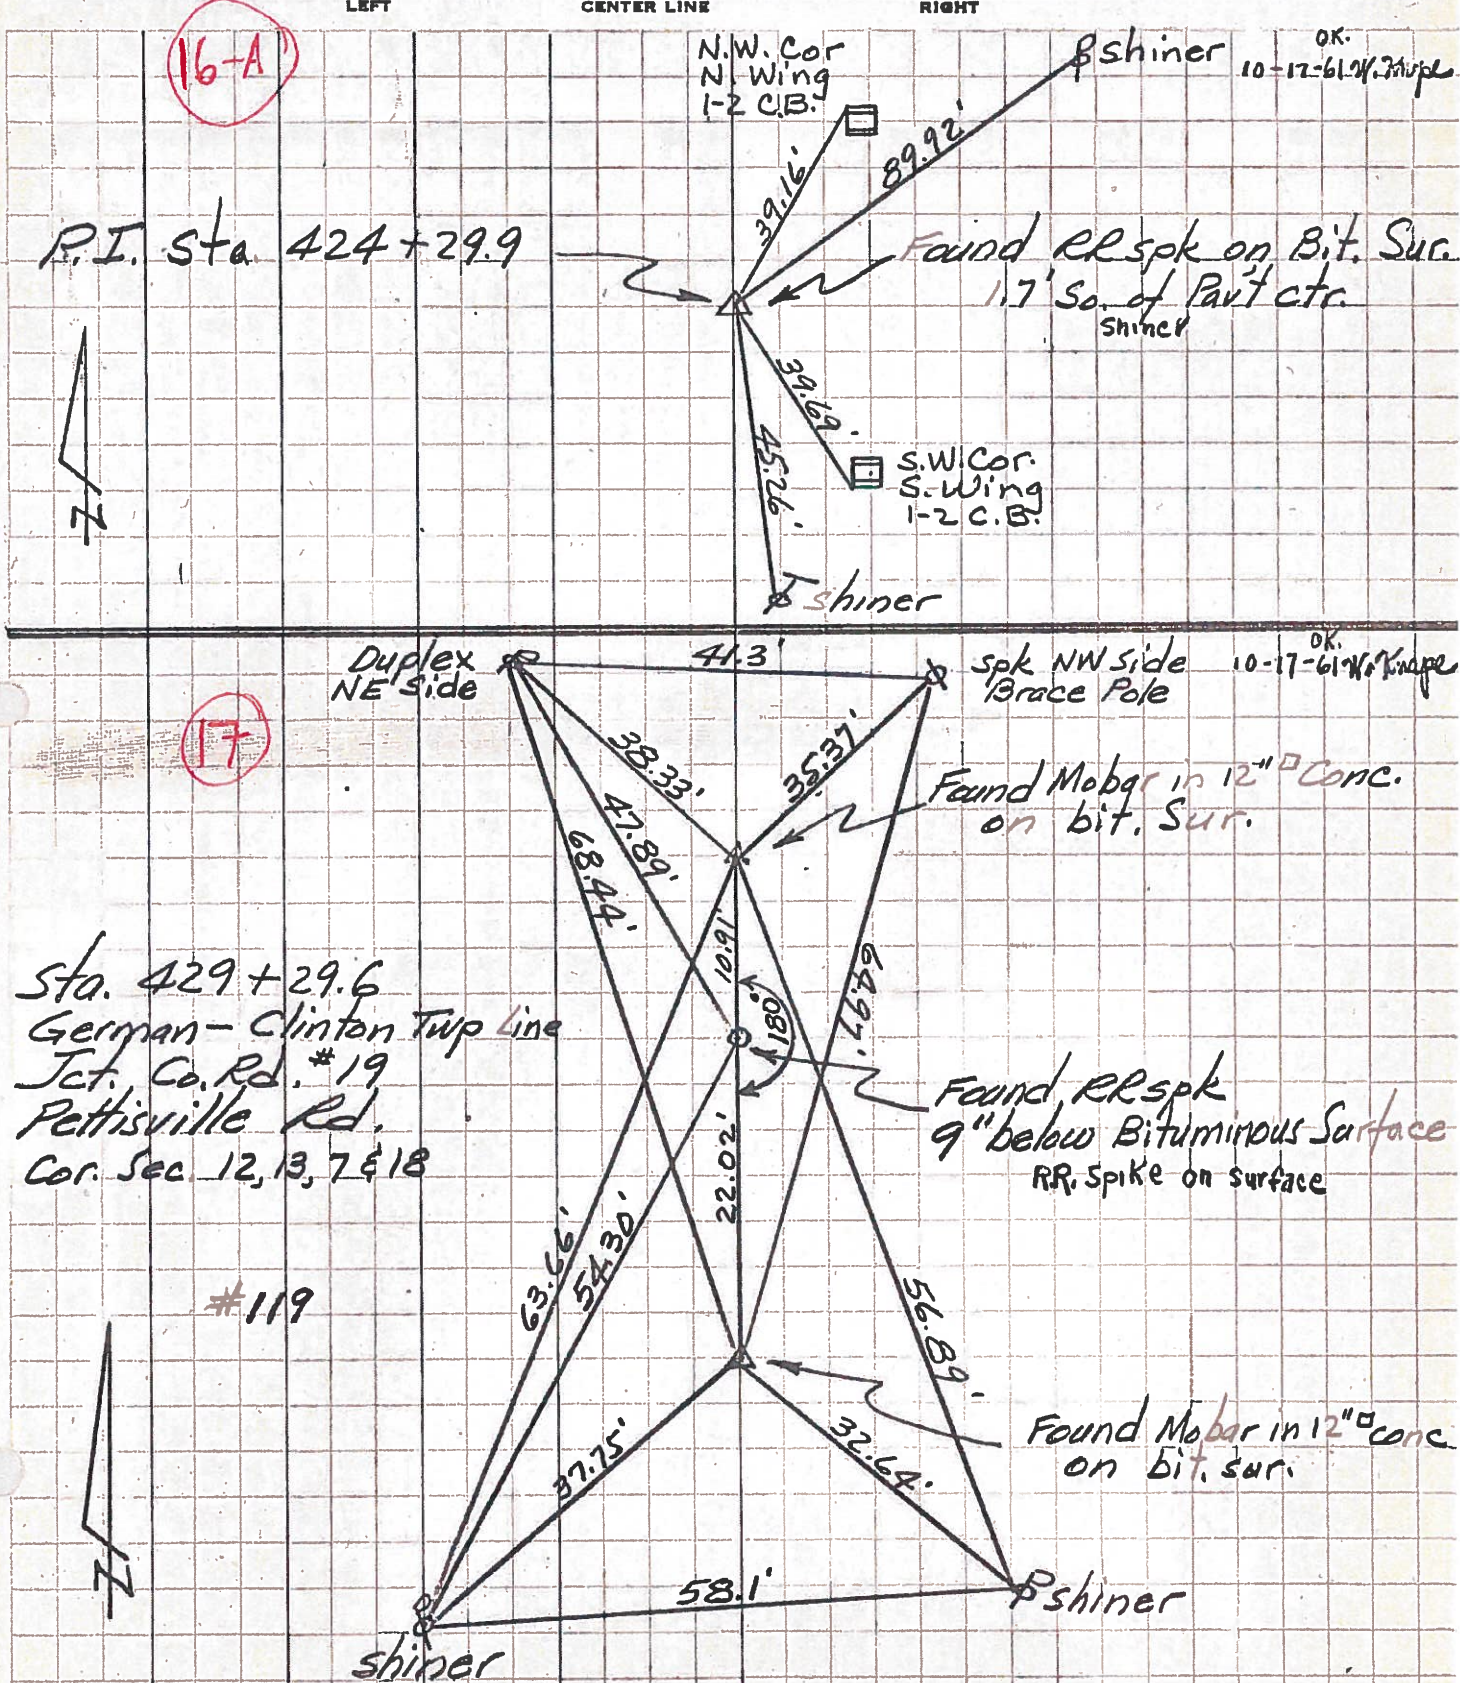 LEFT CENTER LINE RIGHT
16-A
N.W. Cor
N. Wing
1-2 C.B.
shiner
OK.
10-17-61 W. Knape
39.16'
89.92'
P.I. Sta. 424+29.9
Found RRspk on Bit. Sur.
1.7' So. of Pav't ctr.
shiner
39.69'
45.26'
S.W. Cor.
S. Wing
1-2 C.B.
N
shiner
Duplex
NE Side
41.3'
spk NW Side
Brace Pole
OK.
10-17-61 W. Knape
17
38.33'
35.37'
47.89'
68.44'
Found Mobar in 12"□ Conc.
on bit. Sur.
10.91'
180°
64.97'
Sta. 429+29.6
German-Clinton Twp Line
Jct. Co. Rd. #19
Pettisville Rd.
Cor. Sec. 12, 13, 7 & 18
Found RRspk
9" below Bituminous Surface
RR. Spike on surface
22.02'
63.66'
54.30'
56.89'
#119
Found Mobar in 12"□ conc
on bit. sur.
37.75'
32.64'
N
58.1'
shiner
shiner